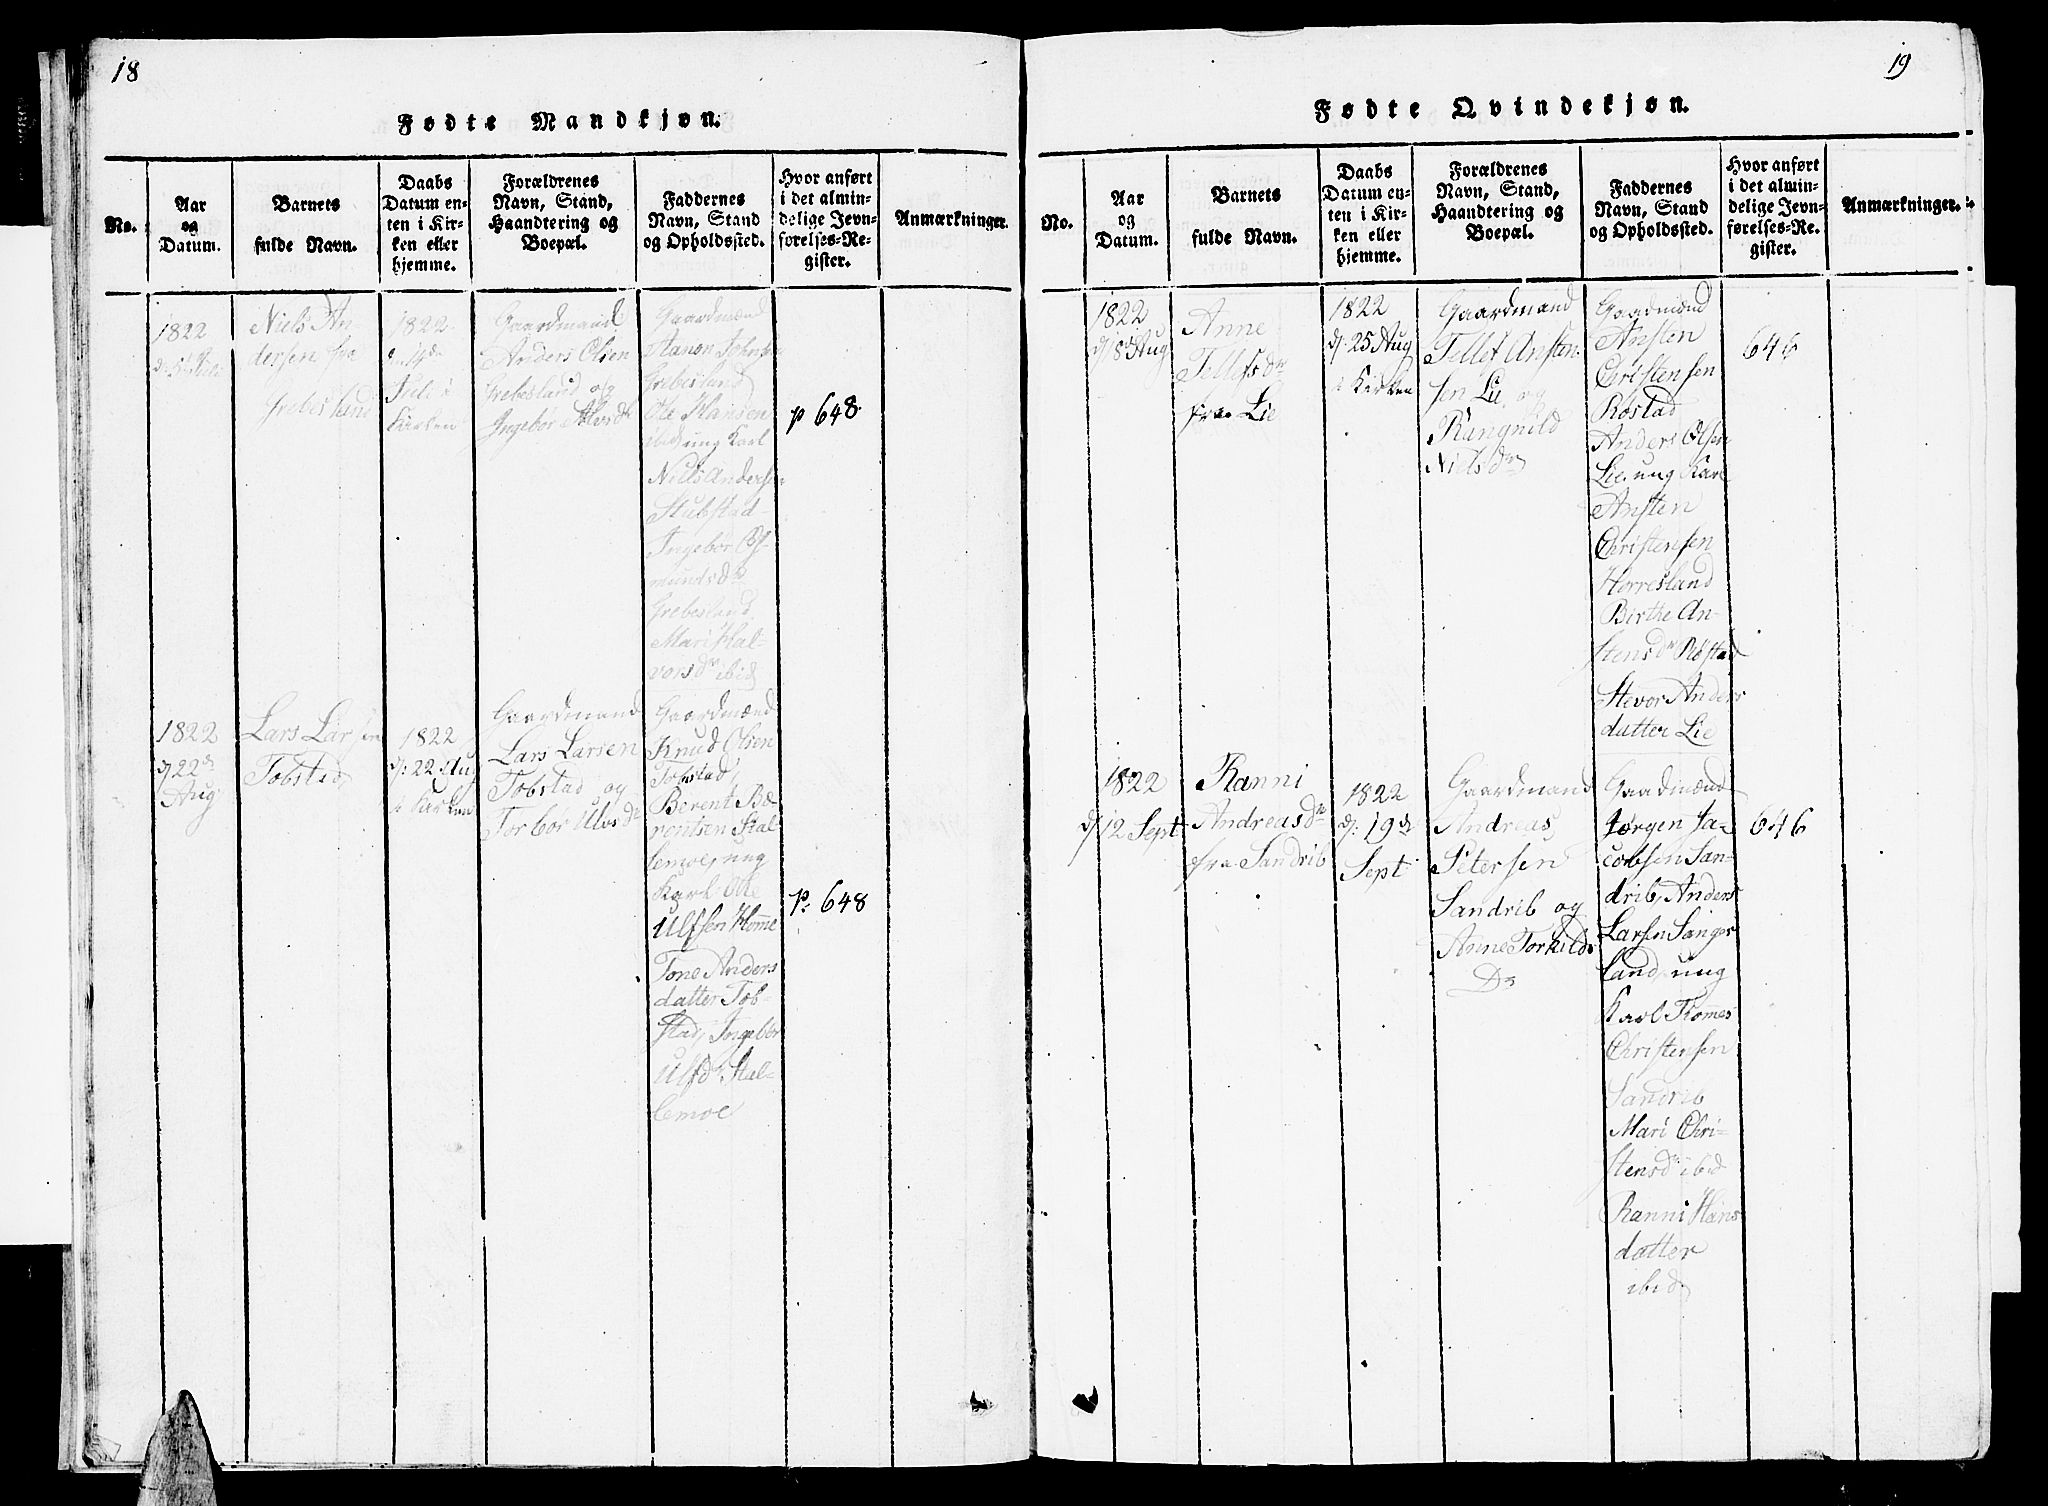 18
Fødte Mandkjøn.
No.
Aar
og
Datum.
Barnets
fulde Navn.
Daabs
Datum en-
ten i Kir-
ken eller
hjemme.
Forældrenes
Navn, Stand,
Haandtering og
Boepæl.
Faddernes
Navn, Stand
og Opholdssted.
Hvor anført
i det almin-
delige Jevn-
førelses-Re-
gister.
Anmærkninger.
1822
Niels An
dersen fra
Grebesland
1822
Kirken
Gaardmand
Anders Olsen
Grebesland og
Ingebor Alvsdr
Gaardmænd
Grebesland
Ole Hansen
ibid ung Karl
Niels Anders
Stubstad
Ingebor
mundsdr
Grebesland
Mari Hal-
vorsdr ibid
p 648
1822
d 22d
Aug
Lars Larsen
Tobstad
1822
d: 22 Aug
i Kirken
Gaardmand
Lars Larsen
Tobstad og
Torbor Ulvsdr
Gaardmænd
Knud Olsen
Tobstad,
Berent Be
rentsen Stal
lemoe, ung
Karl Ole
Ulfsen Homme
Tone Anders
datter Tob-
stad, Ingebor
Ulfdr Stal-
lemoe
p: 648
19
Fødte Qvindekjøn.
No.
Aar
og
Datum.
Barnets
fulde Navn.
Daabs
Datum en-
ten i Kir-
ken eller
hjemme.
Forældrenes
Navn, Stand,
Haandtering og
Boepæl.
Faddernes
Navn, Stand
og Opholdssted.
Hvor anført
i det almin-
delige Jevn-
førelses-Re-
gister.
Anmærkninger.
1822
d 8d Aug
Anne
Tellefsdr
fra Lie
1822
d: 25 Aug
i Kirken
Gaardmand
Tellef Ansten
sen Lie og
Rangnild
Nielsdr
Gaadmænd
Ansten
Christensen
Røstad
Anders Olsen
Lie, ung Karl
Ansten
Christensen
Horresland
Birthe An-
stensdr Røstad
Stevor Anders
datter Lie
646
1822
d 12 Sept
Ranni
Andreasdr
fra Sandrib
1822
d: 19d
Sept
Gaardmand
Andreas
Petersen
Sandrib og
Anne Torkilds
Dr
Gaadmænd
Jørgen Ja-
cobsen San-
drib, Anders
Larsen Sanges
land, ung
Karl Thommes
Christensen
Sandrib
Mari Chri-
stensdr ibid
Ranni Hans
datter
ibid
646